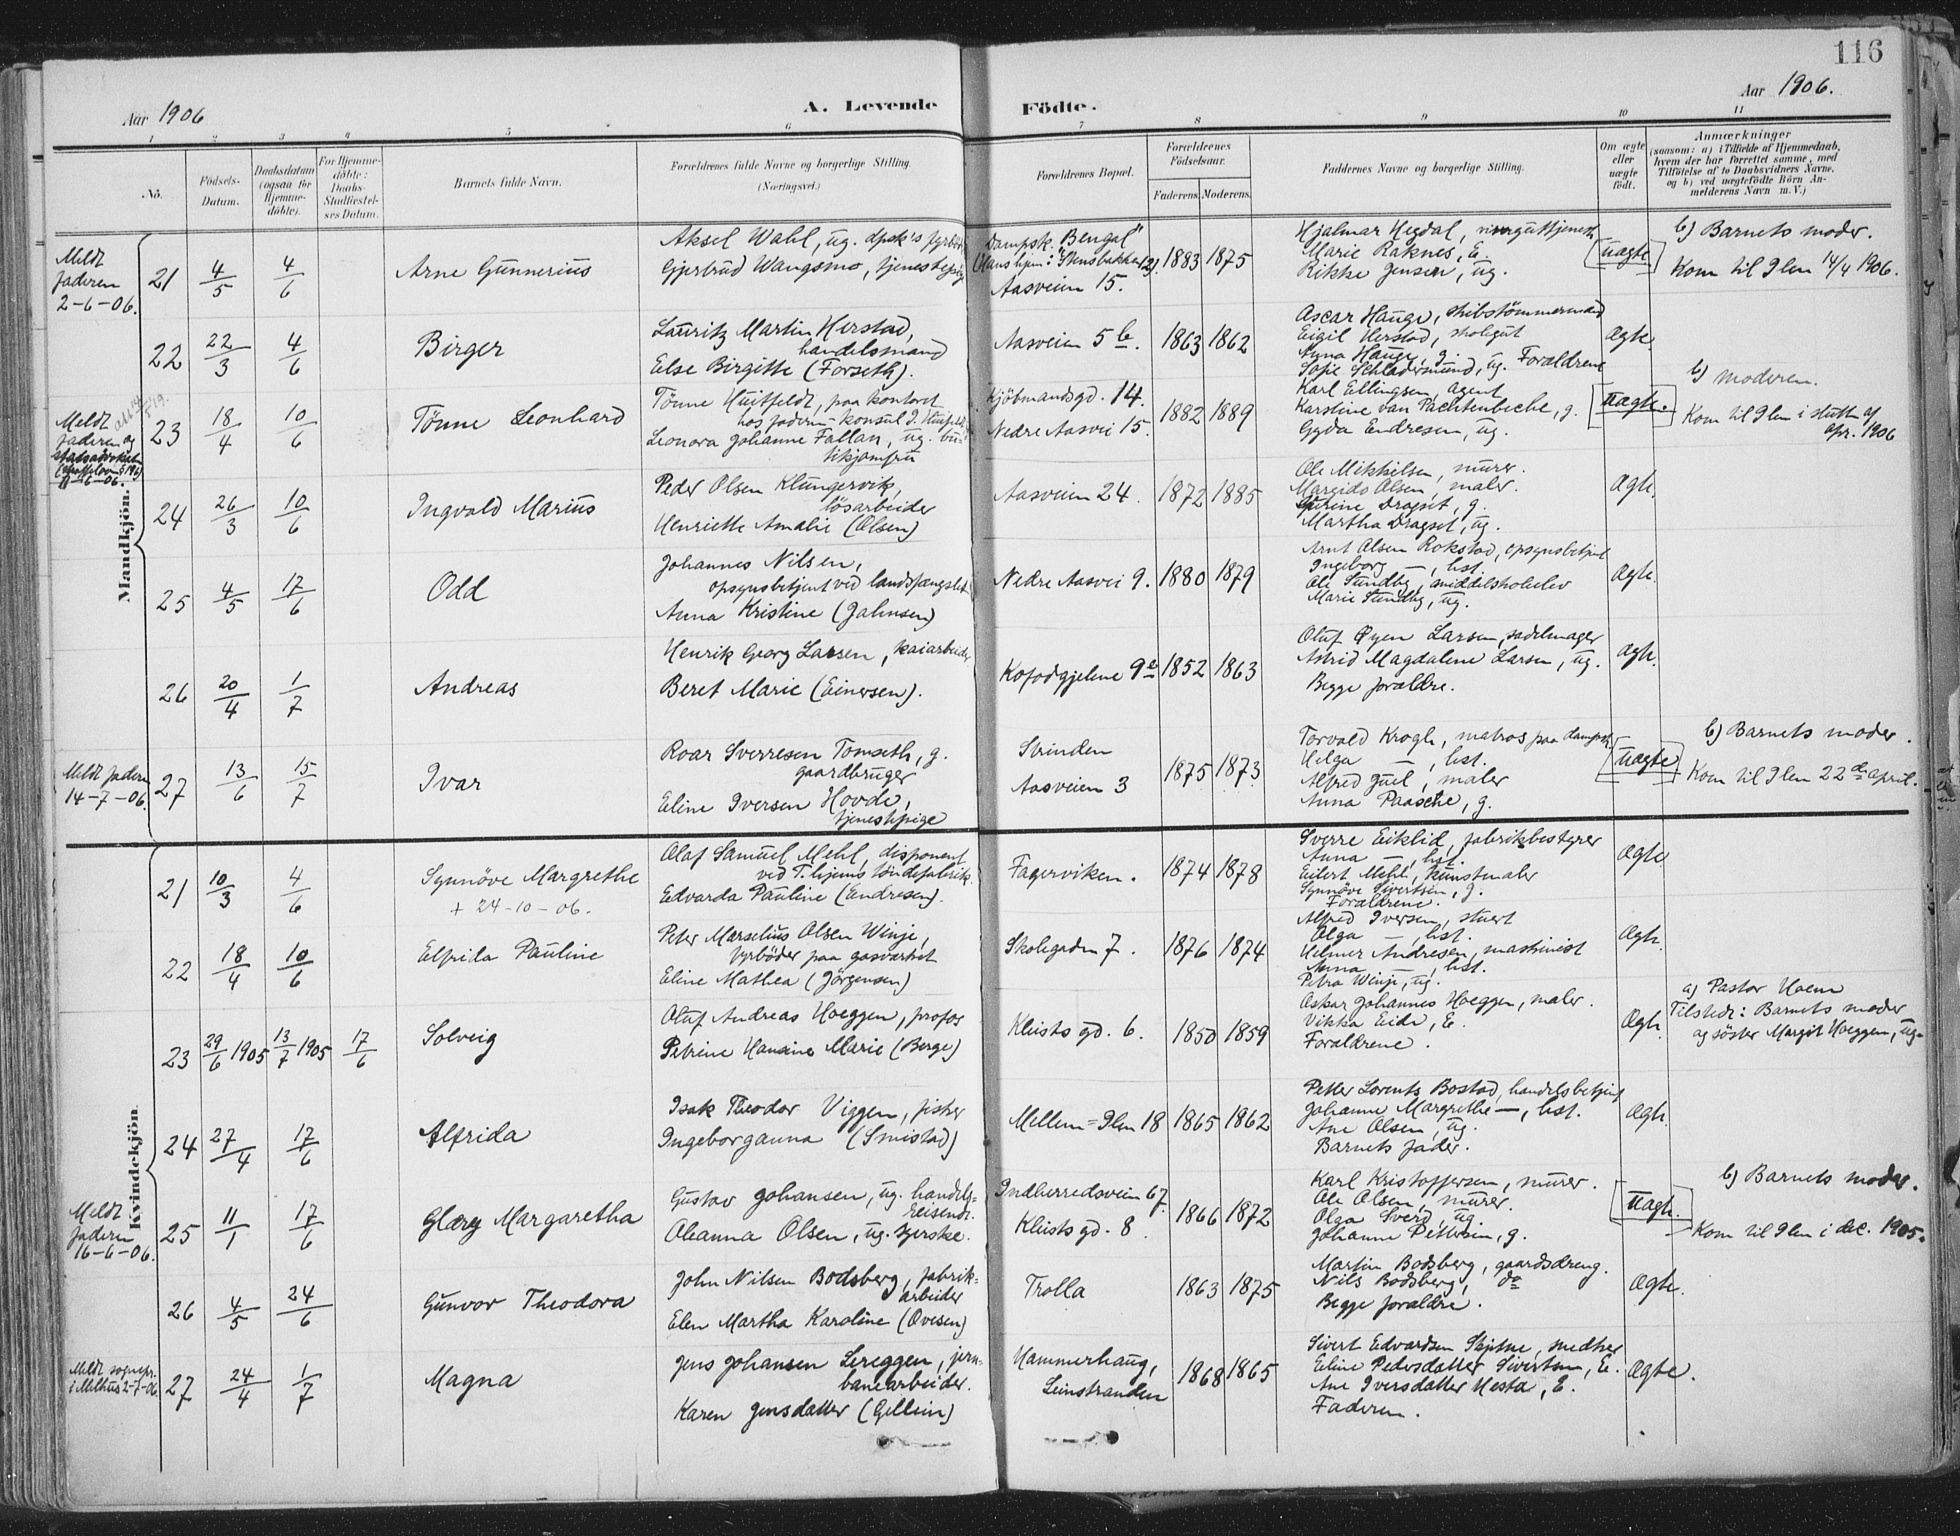 116
Aar 1906
A. Levende Födte.
Aar 1906.
1 2 3 4 5 6 7 8 9 10 11
No.
Födsels-Datum.
Daabsdatum (ogsaa for Hjemme-döbte).
For Hjemme-döbte: Daabs-Stadfæstel-ses Datum.
Barnets fulde Navn.
Forældrenes fulde Navne og borgerlige Stilling.
(Næringsvei.)
Forældrenes Bopæl.
Forældrenes Födselsaar.
Faderens. Moderens.
Faddernes Navne og borgerlige Stilling.
Om ægte eller uægte födt.
Anmærkninger
(saasom: a) i Tilfælde af Hjemmedaab, hvem der har forrettet samme, med Tilföielse af to Daabsvidners Navne. og b) ved uægtefödte Börn An-melderens Navn m. V.)
Mandkjön.
Meldt faderen 2-6-06.
21 4/5 4/6 Arne Gunnerius
Aksel Wahl, ug. dpsk's fyrböder
Gjertrud Wangsmo, tjenestepige
Dampsk. "Bengal"
Aasveien 15.
1883 1875
Hjalmar Hegdal,
Marie Raknes, E.
Rikke Jensen, ug.
uægte
b) Barnets moder.
Kom til Ilen 14/4 1906.
22 22/3 4/6 Birger
Lauritz Martin Herstad,
handelsmand
Else Birgitte (Forseth).
Aasveien 5 b. 1863 1862
Ascar Hauge, skibstömmermand
Eigil Herstad, skolegut
Anna Hauge, g.
Sofie Schladermund, ug. Forældrene
ægte.
Meldt faderen og statsadvokaten
11-6-06.
23 18/4 10/6 Tönne Leonhard
Tönne Huitfeldt, paa kontoret
hos faderen - konsul J. Huitfeldt
Leonora Johanne Fallan, ug. bu-
tikjomfru
Kjöbmandsgd. 14.
Nedre Aasvei 15.
1882 1889
Karl Ellingsen, agent
Karstine van Pachtenbeche, g.
Gyda Endresen, ug.
uægte.
b) moderen.
Kom til Ilen i slutt. af
apr. 1906
24 26/3 10/6 Ingvald Marius
Peder Olsen Klungervik,
lösarbeider
Henriette Amalie (Olsen)
Aasveien 24. 1872 1885
Ole Mikkelsen, murer.
Margido Olsen, maler.
Dragset, g.
Martha Dragset, ug.
ægte.
25 4/5 17/6 Odd
Johannes Nilsen,
opsynsbetjent ved landsfængslet
Anna Kristine (Jahnsen)
Nedre Aasvei 9. 1880 1879
Arnt Olsen Rokstad, opsynsbetjent
Ingeborg —, hst.
Ole Sundby, middelskoleelev
Marie Sundby, ug.
ægte.
26 20/4 1/7 Andreas
Henrik Georg Larsen, kaiarbeider
Beret Marie (Einersen).
Kofodgjelene 9 a 1852 1863
Oluf Øyen Larsen, sadelmager
Astrid Magdalene Larsen, ug.
Begge forældre.
ægte.
Meldt faderen 14-7-06.
27 13/6 15/7 Ivar
Roar Sverresen Tomseth, g.
gaardbruger
Eline Iversen Hovde,
tjenestepige
Strinden
Aasveien 3
1875 1873
Torvald Krogh, matros paa dampsk.
Helga —, hst.
Alfred Juel, maler
Anna Paasche, g.
uægte
b) Barnets moder.
Kom til Ilen 22de april.
Kvindekjön.
21 10/3 4/6 Synnöve Margrethe
+ 24-10-06.
Olaf Samuel Mehl, disponent
ved T.hjems töndefabrik.
Edvarda Pauline (Endresen).
Fagerviken. 1874 1878
Sverre Eiklid, fabrikbestyrer
Anna —, hst.
Eilert Mehl, kunstmaler
Synnöve Sivertsen, g.
Forældrene.
Ægte
22 18/4 10/6 Elfrida Pauline
Peter Marselius Olsen Winje,
fyrböder paa gasværket
Eline Mathea (Jörgensen)
Skolegaden 7. 1876 1874
Alfred Iversen, stuert
Olga —, hst.
Helmer Andresen, maskinist
Anna —, hst.
Petra Winje, ug.
Ægte.
23 29/6 1905 13/7 1905 17/6 Solveig
Oluf Andreas Hoeggen, profos
Petrine Hansine Marie (Berge)
Kleists gd. 6. 1850 1859
Oskar Johannes Hoeggen, maler.
Vikka Eide, E.
Forældrene.
Ægte.
a) Pastor Hoem
Tilstede: Barnets moder
og söster Margit Hoeggen, ug.
24 27/4 17/6 Alfrida
Isak Theodor Viggen, fisker
Ingeborganna (Smistad)
Mellem=Ilen 18 1865 1862
Petter Lorents Bostad, handelsbetjent
Johanne Margrethe —, hst.
Ane Olsen, ug.
Barnets fader.
Ægte.
Meldt faderen 16-6-06.
25 11/1 17/6 Glæry Margaretha
Gustav Johansen, ug. handels-
reisende.
Oleanna Olsen, ug. syerske.
Indherredsveien 67.
Kleists gd. 8.
1866 1872
Karl Kristoffersen, murer.
Ole Olsen, murer.
Olga Sverd, ug.
Johanne Pettersen, g.
uægte.
b) Barnets moder.
Kom til Ilen i dec. 1905.
26 4/5 24/6 Gunvor Theodora
John Nilsen Bodsberg, fabrik-
arbeider
Elen Martha Karoline (Ovesen)
Trolla 1863 1875
Martin Bodsberg, gaardsdreng.
Nils Bodsberg, do
Begge forældre.
Ægte.
Meldt sognepr. i Melhus 2-7-06.
27 24/4 1/7 Magna
Jens Johansen Lereggen, jern-
banearbeider.
Karen Jensdatter (Gellein)
Hammerhaug,
Leinstranden
1868 1865
Sivert Edvardsen Skjetne, snedker
Eline Pedersdatter Sivertsen, E.
Ane Iversdatter Hesta, E.
Faderen.
Ægte.